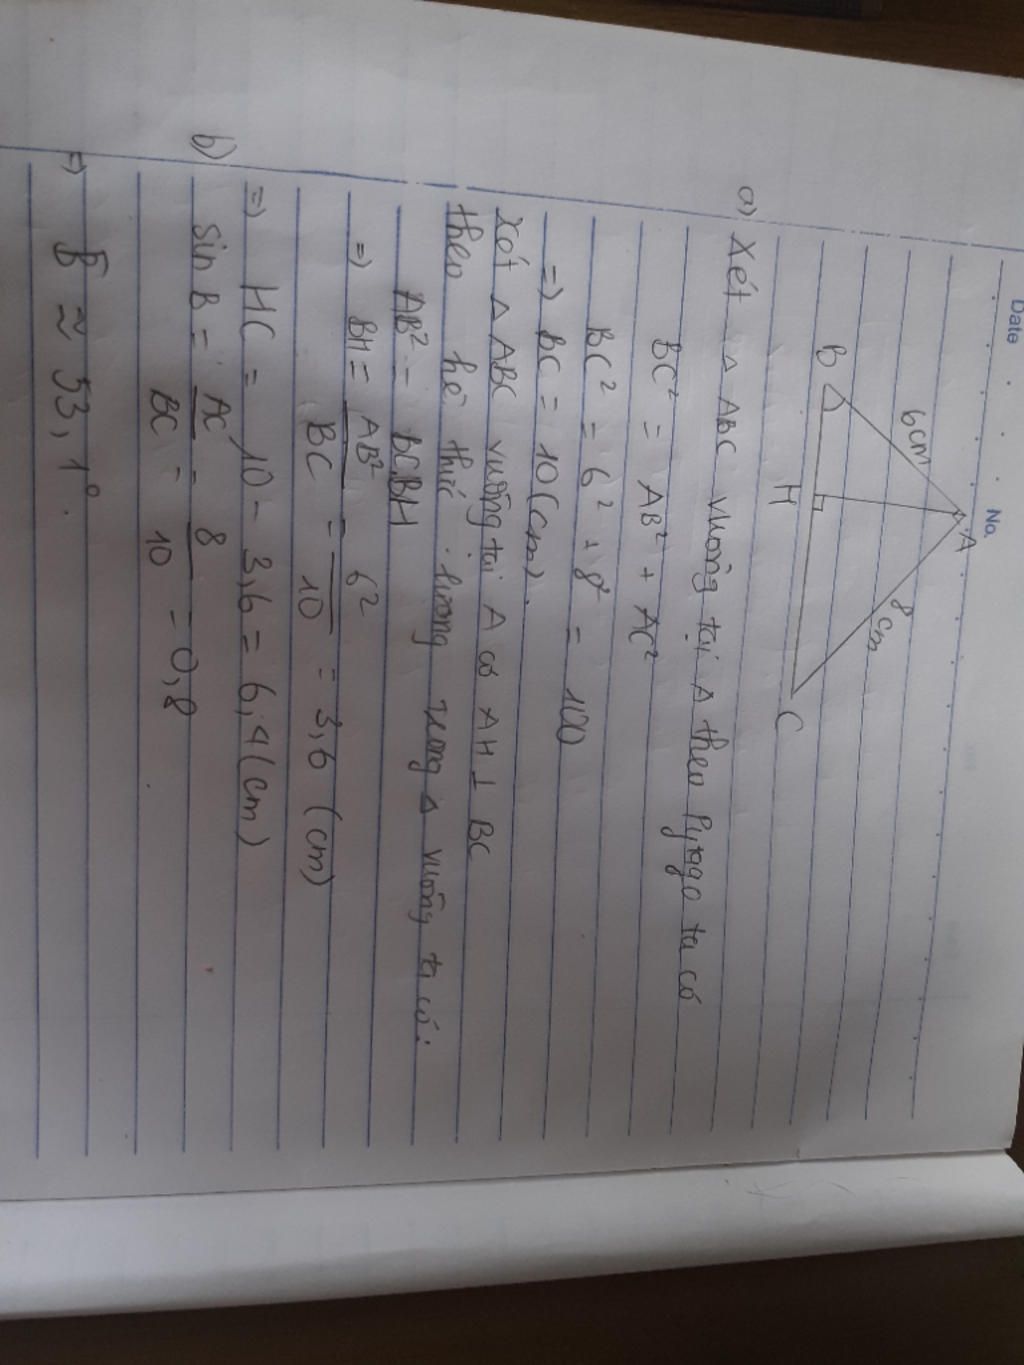 Date No.
A
6cm
8cm
B H C
a) Xét △ ABC vuông tại A theo Pytago ta có
BC² = AB² + AC²
BC² = 6² + 8² = 100
=) BC = 10 (cm).
Xét △ ABC vuông tại A có AH ⊥ BC
theo hệ thức lương trong △ vuông ta có:
AB² = BC.BH
=) BH = AB²/BC = 6²/10 = 3,6 (cm)
=) HC = 10 - 3,6 = 6,4 (cm)
b) sin B = AC/BC = 8/10 = 0,8
=) B̂ ≈ 53,1°.